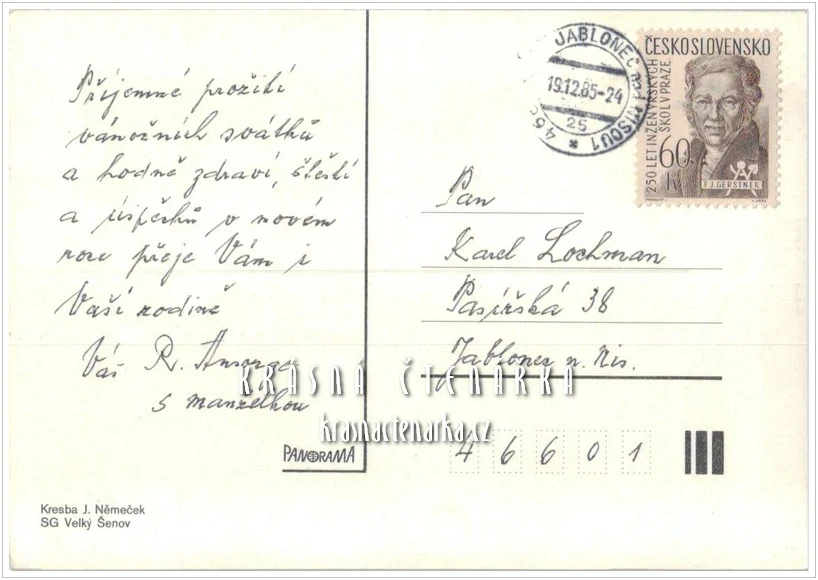 Příjemné prožití
vánočních svátků
a hodně zdraví, štěstí
a úspěchů v novém
roce přeje Vám i
Vaší rodině
Váš R. Ansorge
s manželkou
PANORAMA
Kresba J. Němeček
SG Velký Šenov
JABLONEC NAD NISOU 1
19.12.85-24
25
466
ČESKOSLOVENSKO
250 LET INŽENÝRSKÝCH
ŠKOL V PRAZE
60
h
F.J. GERSTNER
Pan
Karel Lochman
Pasířská 38
Jablonec n. Nis.
46601
KRÁSNÁ ČTENÁRKA
krasnactenarka.cz